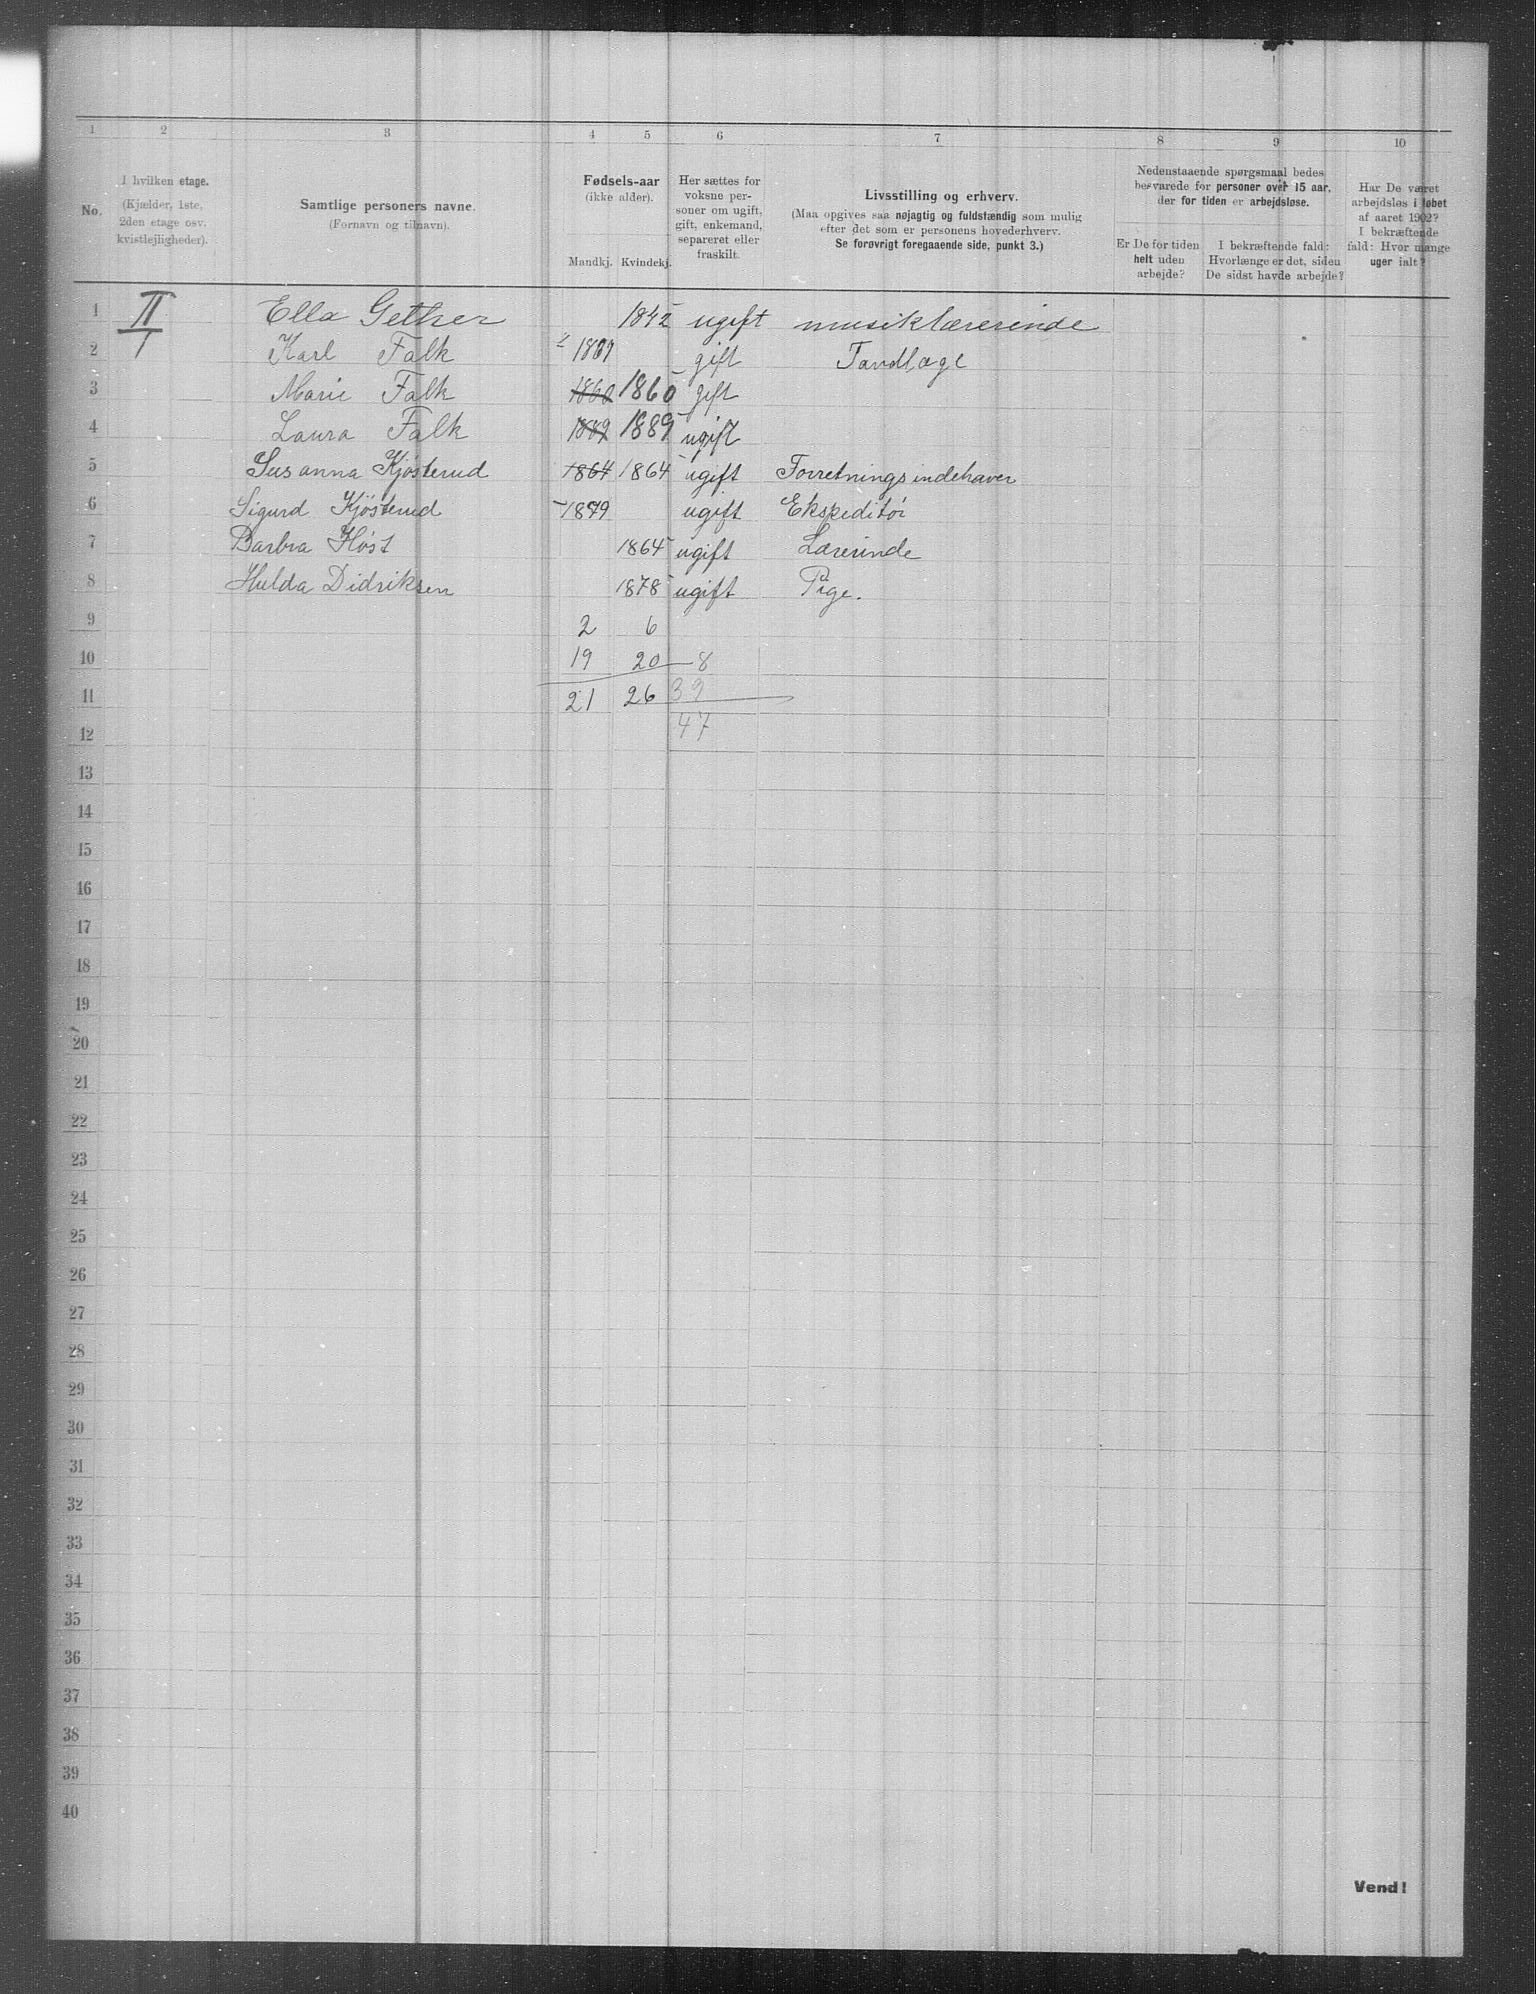 1 2 3 4 5 6 7 8 9 10
No.
I hvilken etage.
(Kjælder, 1ste,
2den etage osv.
kvistlejligheder).
Samtlige personers navne.
(Fornavn og tilnavn).
Fødsels-aar
(ikke alder).
Mandkj. Kvindekj.
Her sættes for
voksne per-
soner om ugift,
gift, enkemand,
separeret eller
fraskilt.
Livsstilling og erhverv.
(Maa opgives saa nøjagtig og fuldstændig som mulig
efter det som er personens hovederhverv.
Se forøvrigt foregaaende side, punkt 3.)
Nedenstaaende spørgsmaal bedes
besvarede for personer over 15 aar,
der for tiden er arbejdsløse.
Er De for tiden
helt uden
arbejde?
I bekræftende fald:
Hvorlænge er det, siden
De sidst havde arbejde?
Har De været
arbejdsløs i løbet
af aaret 1902?
I bekræftende
fald: Hvor mange
uger ialt?
1 II Ella Gether 1842 ugift musiklærerinde
2 Karl Falk gift Tandlæge
3 Marie Falk 1860 1860 gift
4 Laura Falk 1889 1889 ugift
5 Susanna Kjösterud 1864 1864 ugift Forretningsindehaver
6 Sigurd Kjösterud 1879 ugift Ekspeditör
7 Barbra Höst 1864 ugift Lærerinde
8 Hulda Didriksen 1878 ugift Pige.
9 2 6
10 19 20 8
11 21 26 39
12 47
13
14
15
16
17
18
19
20
21
22
23
24
25
26
27
28
29
30
31
32
33
34
35
36
37
38
39
40
Vend!